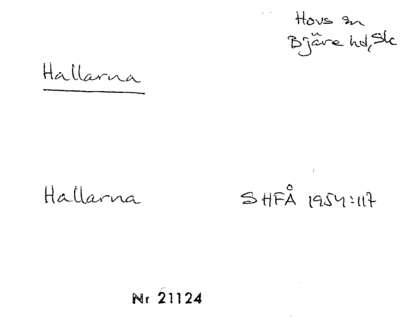 Hovs sn
Bjäre hd, Sk
Hallarna
Hallarna SHFÅ 1954:117
Nr 21124